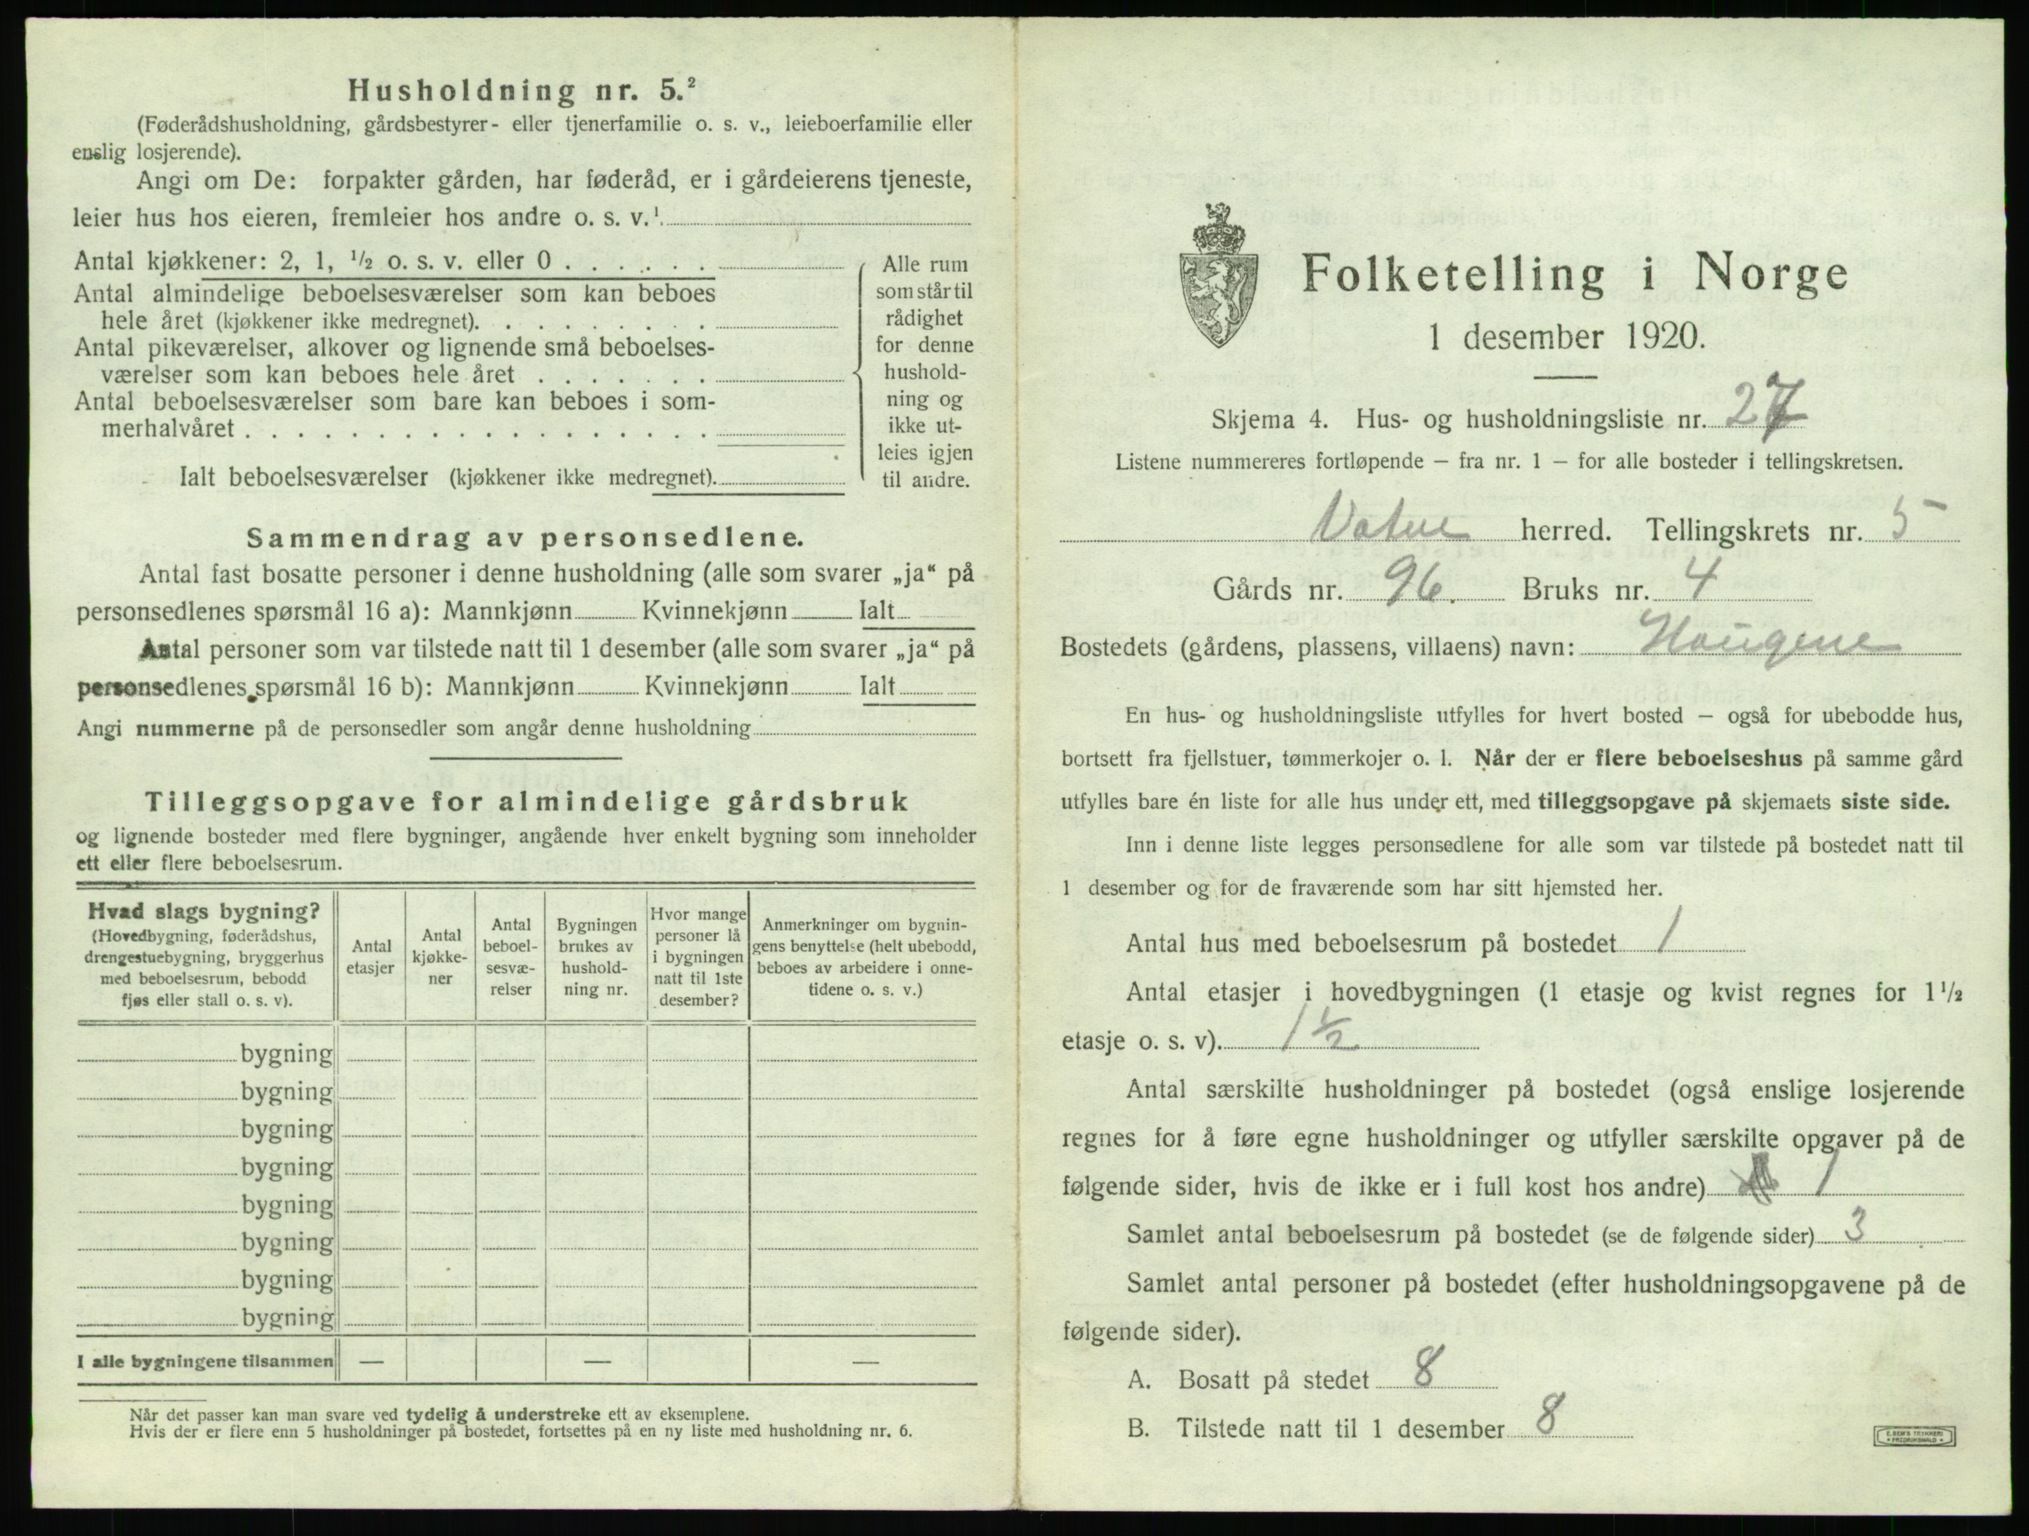 Husholdning nr. 5.²
(Føderådshusholdning, gårdsbestyrer- eller tjenerfamilie o. s. v., leieboerfamilie eller
enslig losjerende).
Angi om De: forpakter gården, har føderåd, er i gårdeierens tjeneste,
leier hus hos eieren, fremleier hos andre o. s. v.¹
Antal kjøkkener: 2, 1, ½ o. s. v. eller 0 . . . . . .
Antal almindelige beboelsesværelser som kan beboes
hele året (kjøkkener ikke medregnet). . . . . . . . .
Antal pikeværelser, alkover og lignende små beboelses-
værelser som kan beboes hele året . . . . . . .
Antal beboelsesværelser som bare kan beboes i som-
merhalvåret . . . . . . . . . . . . . . . . . .
Ialt beboelsesværelser (kjøkkener ikke medregnet).
Alle rum
som står til
rådighet
for denne
hushold-
ning og
ikke ut-
leies igjen
til andre.
Sammendrag av personsedlene.
Antal fast bosatte personer i denne husholdning (alle som svarer „ja“ på
personsedlenes spørsmål 16 a): Mannkjønn Kvinnekjønn Ialt
Antal personer som var tilstede natt til 1 desember (alle som svarer „ja“ på
personsedlenes spørsmål 16 b): Mannkjønn Kvinnekjønn Ialt
Angi nummerne på de personsedler som angår denne husholdning
Tilleggsopgave for almindelige gårdsbruk
og lignende bosteder med flere bygninger, angående hver enkelt bygning som inneholder
ett eller flere beboelsesrum.
Hvad slags bygning?
(Hovedbygning, føderådshus,
drengestuebygning, bryggerhus
med beboelsesrum, bebodd
fjøs eller stall o. s. v).
Antal
etasjer
Antal
kjøkke-
ner
Antal
beboel-
sesvæ-
relser
Bygningen
brukes av
hushold-
ning nr.
Hvor mange
personer lå
i bygningen
natt til 1ste
desember?
Anmerkninger om bygnin-
gens benyttelse (helt ubebodd,
beboes av arbeidere i onne-
tidene o. s. v.)
bygning
bygning
bygning
bygning
bygning
bygning
bygning
bygning
I alle bygningene tilsammen — — —
Når det passer kan man svare ved tydelig å understreke ett av eksemplene.
Hvis der er flere enn 5 husholdninger på bostedet, fortsettes på en ny liste med husholdning nr. 6.
Folketelling i Norge
1 desember 1920.
Skjema 4. Hus- og husholdningsliste nr. 27
Listene nummereres fortløpende – fra nr. 1 – for alle bosteder i tellingskretsen.
Vatne herred. Tellingskrets nr. 5
Gårds nr. 96. Bruks nr. 4
Bostedets (gårdens, plassens, villaens) navn: Haugene
En hus- og husholdningsliste utfylles for hvert bosted – også for ubebodde hus,
bortsett fra fjellstuer, tømmerkojer o. l. Når der er flere beboelseshus på samme gård
utfylles bare én liste for alle hus under ett, med tilleggsopgave på skjemaets siste side.
Inn i denne liste legges personsedlene for alle som var tilstede på bostedet natt til
1 desember og for de fraværende som har sitt hjemsted her.
Antal hus med beboelsesrum på bostedet 1
Antal etasjer i hovedbygningen (1 etasje og kvist regnes for 1½
etasje o. s. v). 1½
Antal særskilte husholdninger på bostedet (også enslige losjerende
regnes for å føre egne husholdninger og utfyller særskilte opgaver på de
følgende sider, hvis de ikke er i full kost hos andre) 1
Samlet antal beboelsesrum på bostedet (se de følgende sider) 3
Samlet antal personer på bostedet (efter husholdningsopgavene på de
følgende sider).
A. Bosatt på stedet 8
B. Tilstede natt til 1 desember 8